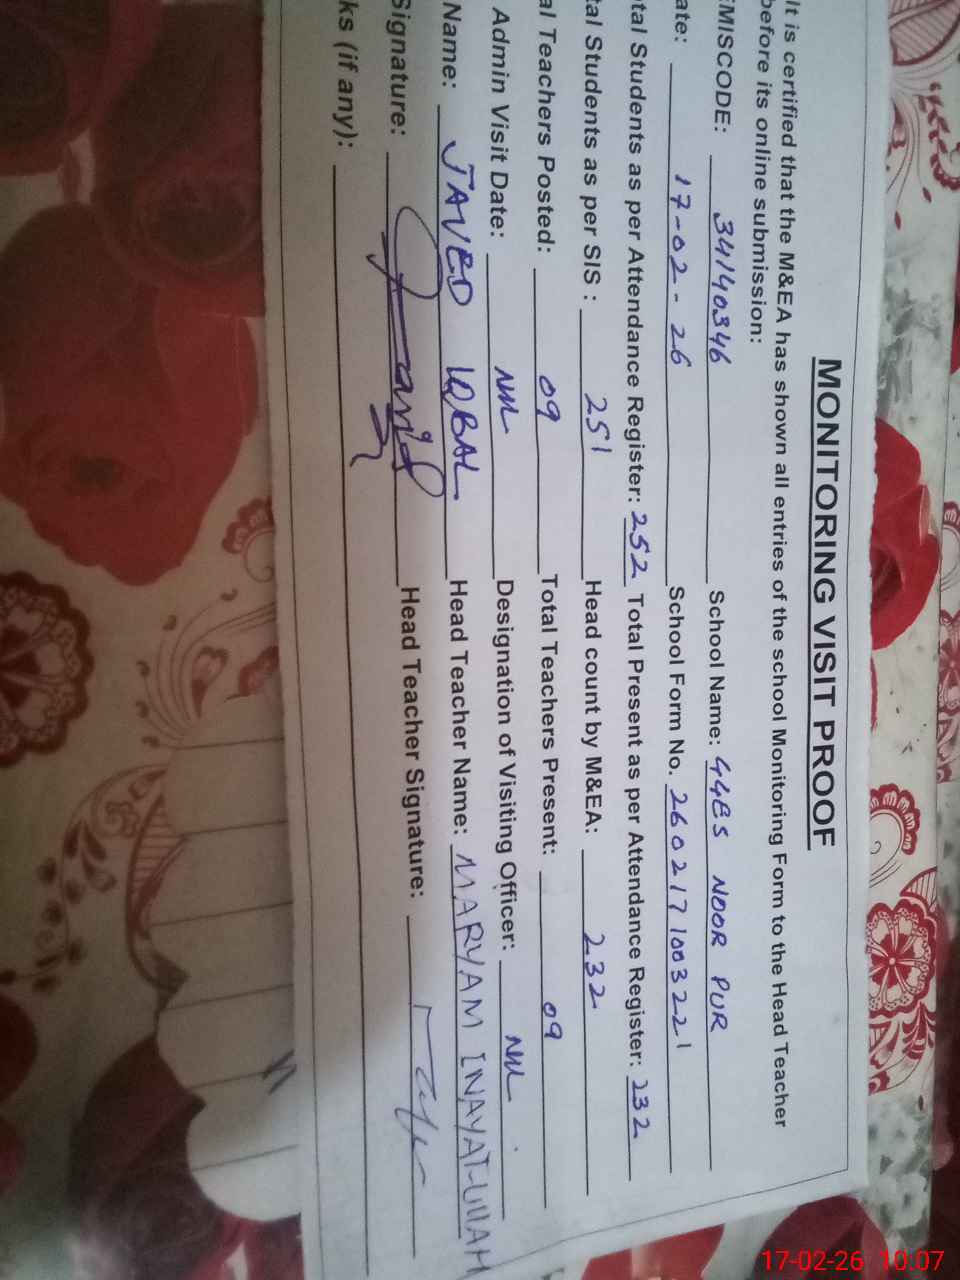 MONITORING VISIT PROOF
It is certified that the M&EA has shown all entries of the school Monitoring Form to the Head Teacher
before its online submission:
EMISCODE: 34140346 School Name: GGES NOOR PUR
ate: 17-02-26 School Form No. 2602171003221
tal Students as per Attendance Register: 252 Total Present as per Attendance Register: 232
tal Students as per SIS : 251 Head count by M&EA: 232
al Teachers Posted: 09 Total Teachers Present: 09
Admin Visit Date: NIL Designation of Visiting Officer: NIL
Name: JAVED IQBAL Head Teacher Name: MARYAM INAYAT-ULLAH
Signature: Head Teacher Signature:
ks (if any):
17-02-26 10:07